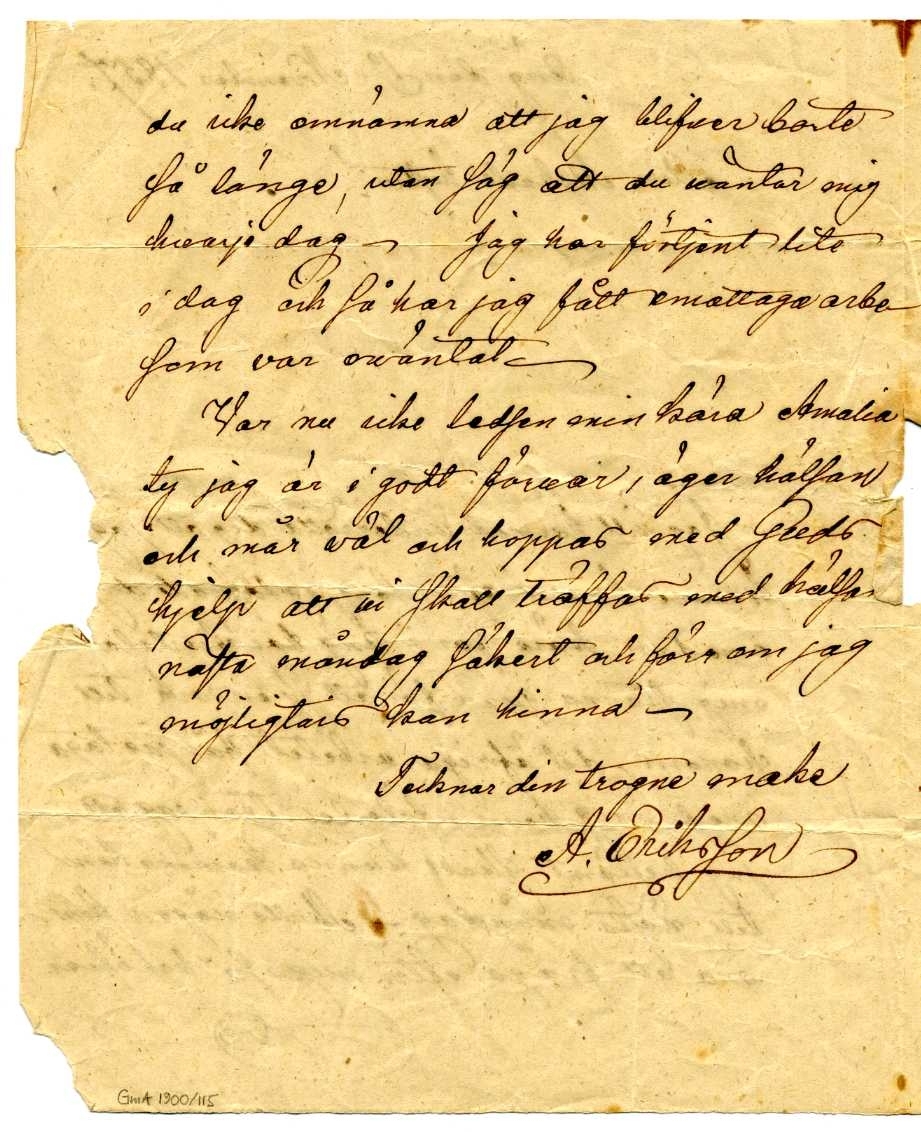 du icke omnämna att jag blifver borte
så länge, utan säg att du wäntar mig
hvarje dag – Jag har förtjent lite
i dag och så har jag fått emottaga arbe
som var owäntat –
Var nu icke ledsen min kära Amalia
ty jag är i godt förvar, äger hälsan
och mår wäl och hoppas med Guds
hjelp att vi skall träffas med hälsa
nästa måndag säkert och förr om jag
möjligtvis kan hinna –
Tecknar din trogne make
A. Erikson
GmA 1900/115